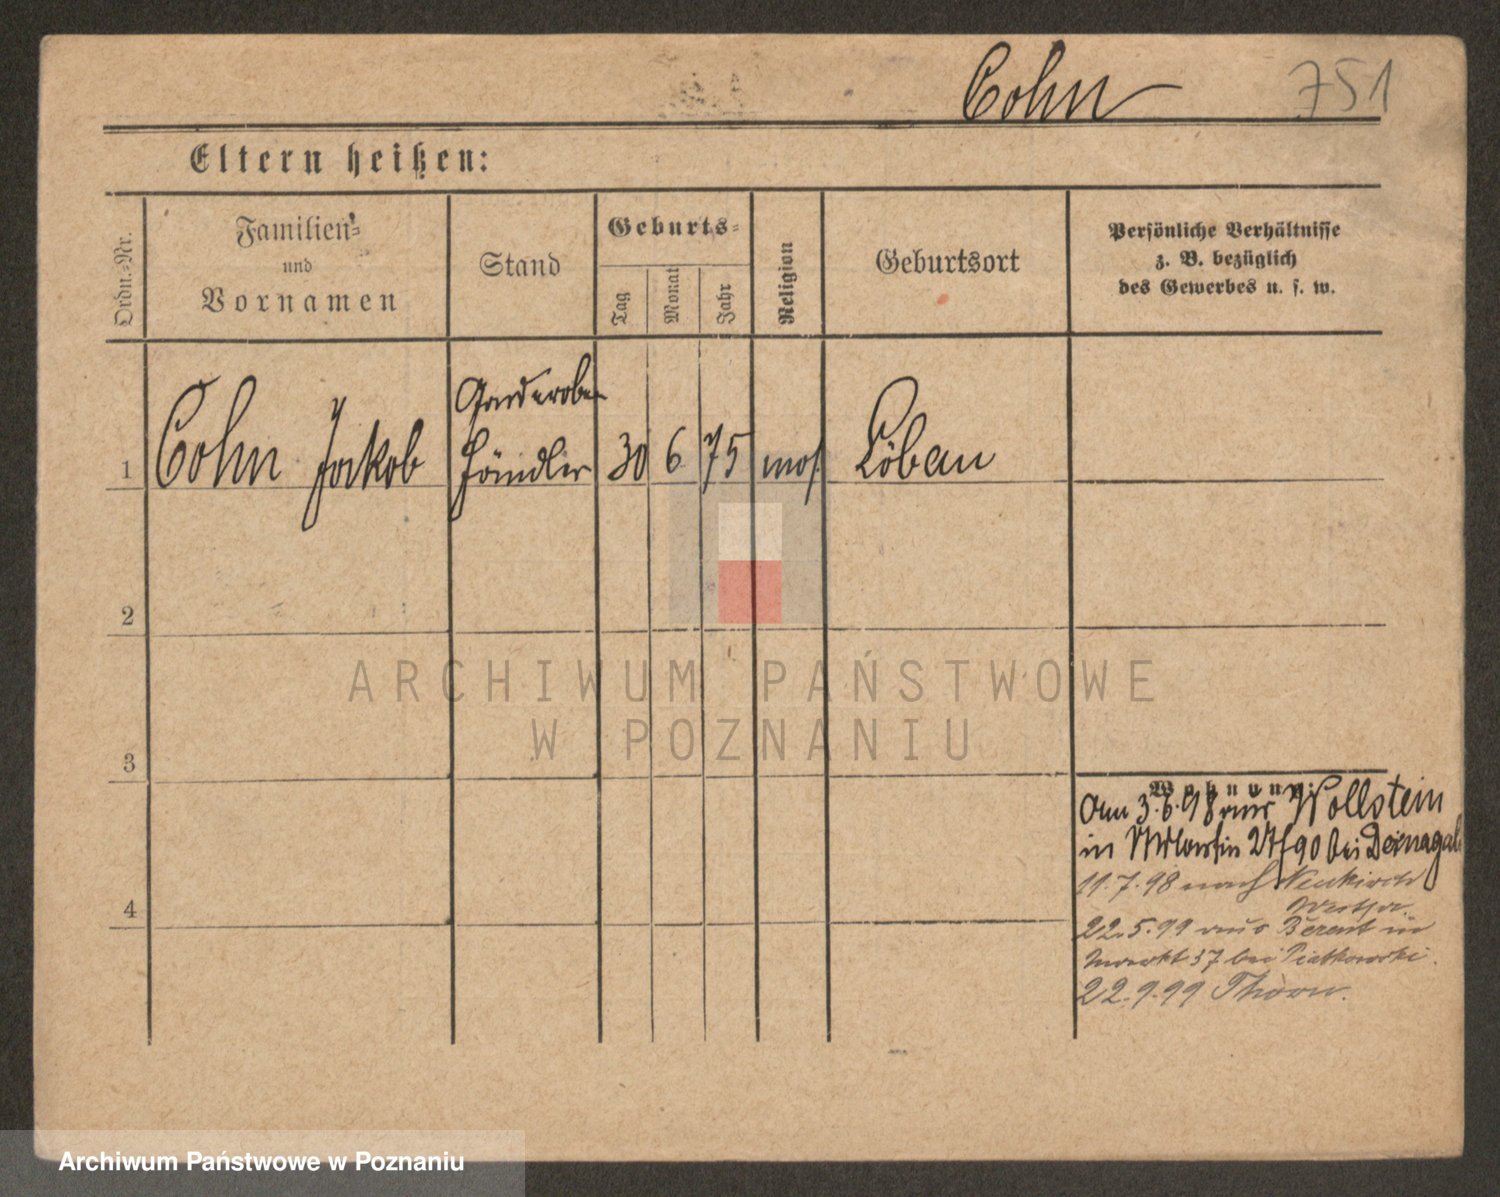 Cohn 751
Eltern heißen:
Ordn.-Nr.
Familien-
und
Vornamen
Stand
Geburts-
Tag
Monat
Jahr
Religion
Geburtsort
Persönliche Verhältnisse
z. B. bezüglich
des Gewerbes u. s. w.
1 Cohn Jakob
Garderoben
Händler
30 6 75 mos Löbau
2
3
4
Wohnung:
Am 3.6.98 aus Wollstein
in 90 bei
11.7.98 nach Neukirch
Westpr.
22.5.99 aus Berent in
Markt 37 bei Piatkowski.
22.9.99 Thorn.
ARCHIWUM PAŃSTWOWE
W POZNANIU
Archiwum Państwowe w Poznaniu